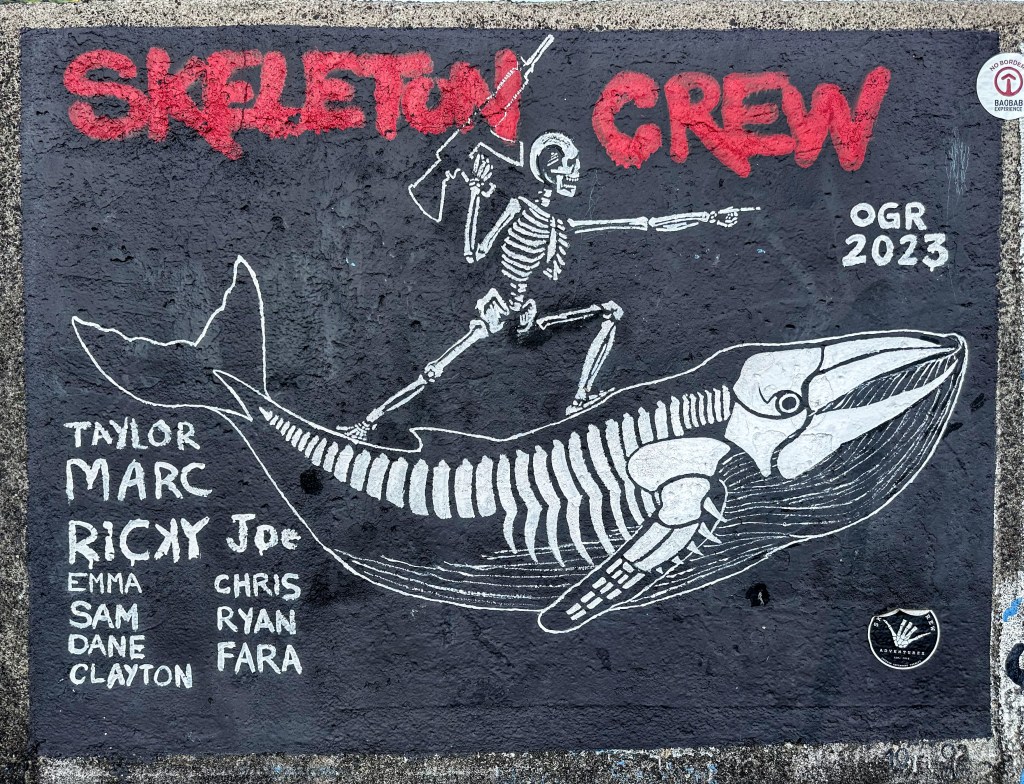 SKELETON CREW
OGR
2023
TAYLOR
MARC
RICKY
EMMA
SAM
DANE
CLAYTON
Joe
CHRIS
RYAN
FARA
NO BORDER
BAOBAB
EXPERIENCE
ADVENTURES